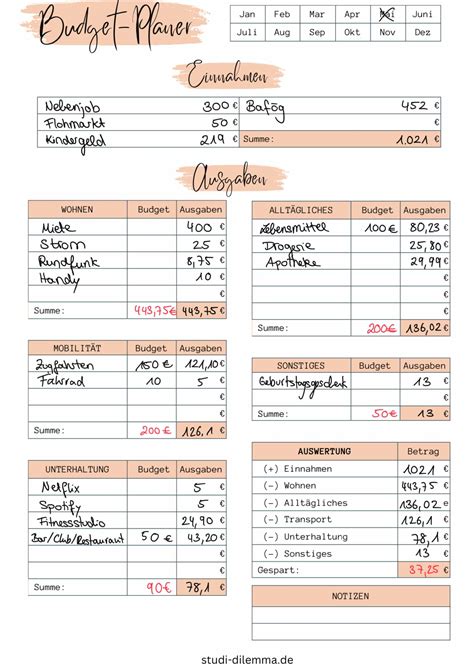 Budget-Planer
Jan Feb Mar Apr Mai Juni
Juli Aug Sep Okt Nov Dez
Einnahmen
Nebenjob 300 € Bafög 452 €
Flohmarkt 50 € €
Kindergeld 219 € Summe: 1.021 €
Ausgaben
WOHNEN Budget Ausgaben
Miete 400 €
Strom 25 €
Rundfunk 8,75 €
Handy 10 €
€
Summe: 443,75€ 443,75 €
ALLTÄGLICHES Budget Ausgaben
Lebensmittel 100€ 80,23 €
Drogerie 25,80 €
Apotheke 29,99 €
€
€
Summe: 200€ 136,02 €
MOBILITÄT Budget Ausgaben
Zugfahrten 150 € 121,10 €
Fahrrad 10 5 €
€
Summe: 200€ 126,1 €
SONSTIGES Budget Ausgaben
Geburtstagsgeschenk 13 €
€
Summe: 50€ 13 €
UNTERHALTUNG Budget Ausgaben
Netflix 5 €
Spotify 5 €
Fitnessstudio 24,90 €
Bar/Club/Restaurant 50 € 43,20 €
€
Summe: 90€ 78,1 €
AUSWERTUNG Betrag
(+) Einnahmen 1021 €
(-) Wohnen 443,75 €
(-) Alltägliches 136,02 €
(-) Transport 126,1 €
(-) Unterhaltung 78,1 €
(-) Sonstiges 13 €
Gespart: 37,25 €
NOTIZEN
studi-dilemma.de